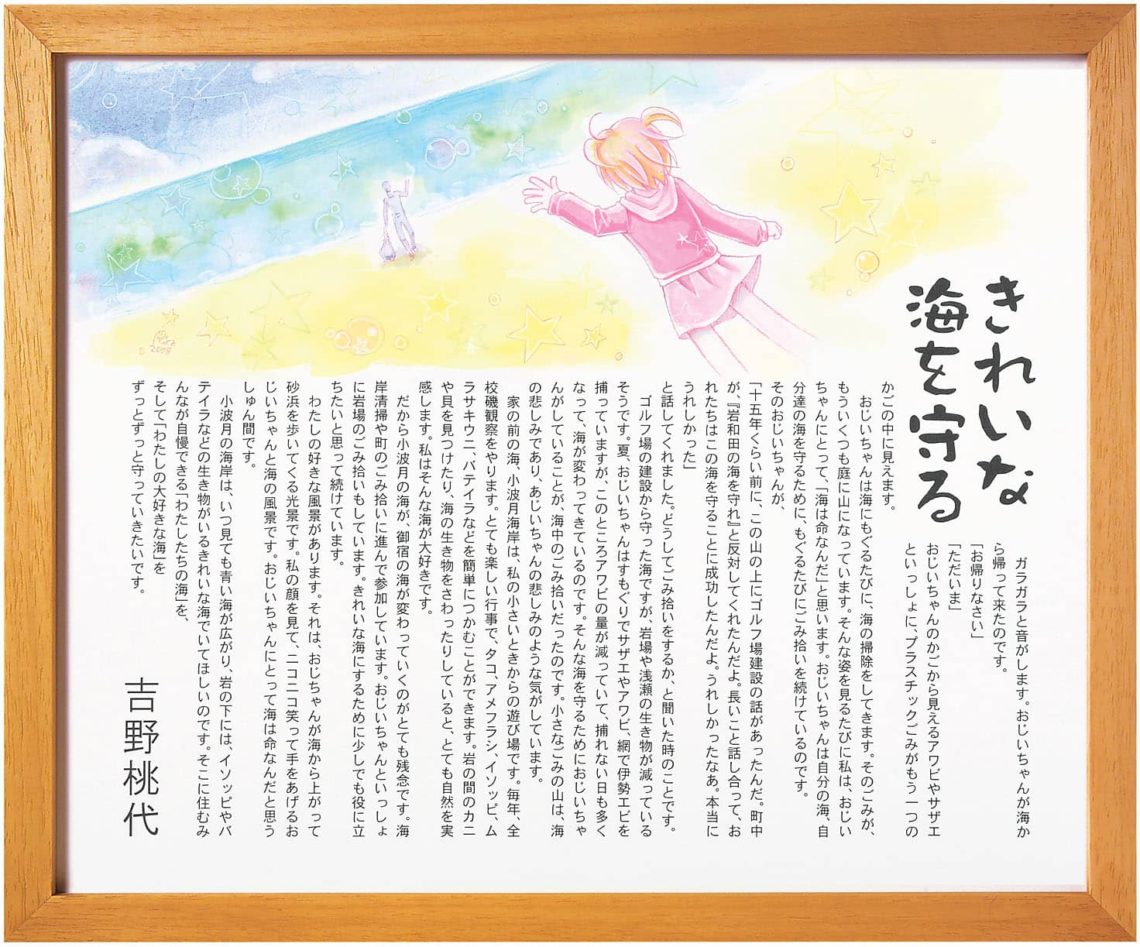 きれいな
海を守る
　ガラガラと音がします。おじいちゃんが海か
ら帰って来たのです。
「お帰りなさい」
「ただいま」
おじいちゃんのかごから見えるアワビやサザエ
といっしょに、プラスチックごみがもう一つの
かごの中に見えます。
　おじいちゃんは海にもぐるたびに、海の掃除をしてきます。そのごみが、
もういくつも庭に山になっています。そんな姿を見るたびに私は、おじい
ちゃんにとって、「海は命なんだ」と思います。おじいちゃんは自分の海、自
分達の海を守るために、もぐるたびにごみ拾いを続けているのです。
そのおじいちゃんが、
「十五年くらい前に、この山の上にゴルフ場建設の話があったんだ。町中
が、『岩和田の海を守れ』と反対してくれたんだよ。長いこと話し合って、お
れたちはこの海を守ることに成功したんだよ。うれしかったなあ。本当に
うれしかった」
と話してくれました。どうしてごみ拾いをするか、と聞いた時のことです。
　ゴルフ場の建設から守った海ですが、岩場や浅瀬の生き物が減っている
そうです。夏、おじいちゃんはすもぐりでサザエやアワビ、網で伊勢エビを
捕っていますが、このところアワビの量が減っていて、捕れない日も多く
なって、海が変わってきているのです。そんな海を守るためにおじいちゃ
んがしていることが、海中のごみ拾いだったのです。小さなごみの山は、海
の悲しみであり、おじいちゃんの悲しみのような気がしています。
　家の前の海、小波月海岸は、私の小さいときからの遊び場です。毎年、全
校磯観察をやります。とても楽しい行事で、タコ、アメフラシ、イソッピ、ム
ラサキウニ、バテイラなどを簡単につかむことができます。岩の間のカニ
や貝を見つけたり、海の生き物をさわったりしていると、とても自然を実
感します。私はそんな海が大好きです。
　だから小波月の海が、御宿の海が変わっていくのがとても残念です。海
岸清掃や町のごみ拾いに進んで参加しています。おじいちゃんといっしょ
に岩場のごみ拾いもしています。きれいな海にするために少しでも役に立
ちたいと思って続けています。
　わたしの好きな風景があります。それは、おじちゃんが海から上がって
砂浜を歩いてくる光景です。私の顔を見て、ニコニコ笑って手をあげるお
じいちゃんと海の風景です。おじいちゃんにとって海は命なんだと思う
しゅん間です。
　小波月の海岸は、いつ見ても青い海が広がり、岩の下には、イソッピやバ
テイラなどの生き物がいるきれいな海でいてほしいのです。そこに住むみ
んなが自慢できる「わたしたちの海」を、
そして「わたしの大好きな海」を
ずっとずっと守っていきたいです。
吉野桃代